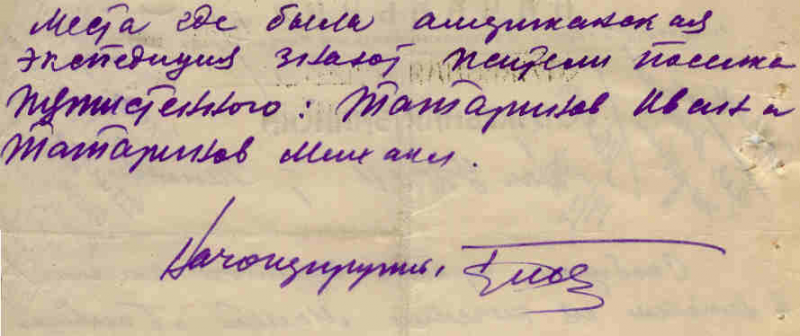 места где была американская
экспедиция знают жители поселка
: Татаринов Иван и
Татаринов Михаил.